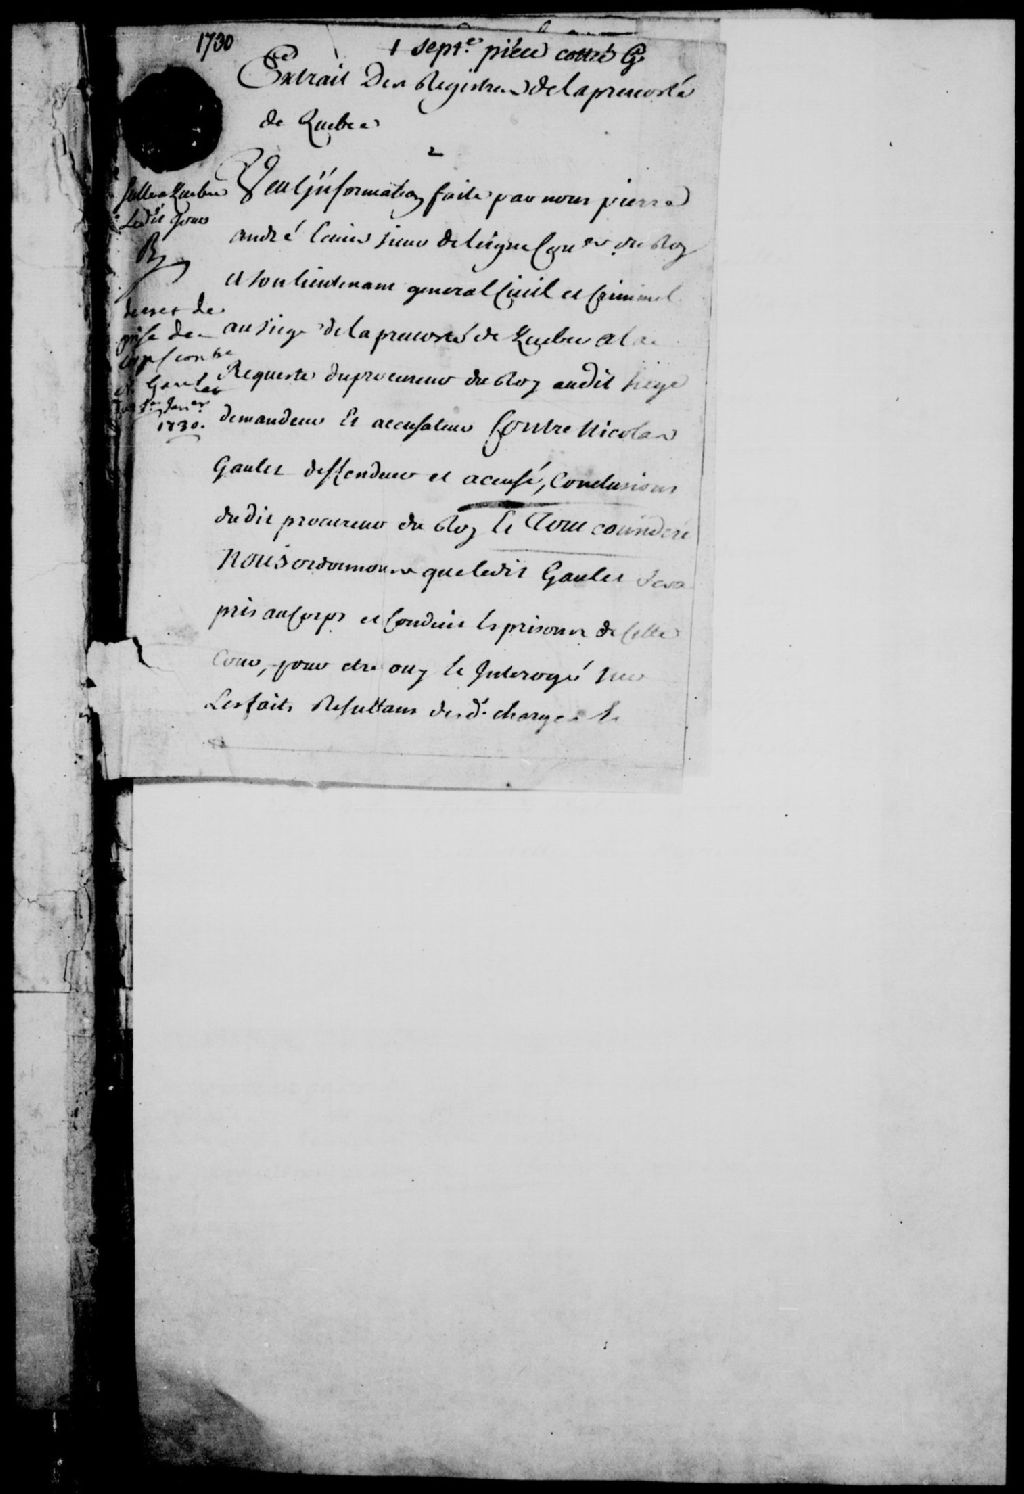 1730
1 sept.e piece cotté G
Extrait Des Registres de la prevosté
de Quebec
2
Veu l'jnformation faite par nous pierre
andré sieur de leigne Con.er du Roy
et son lieutenant general Civil et Criminel
au siege de la prevosté de Quebec a la
Requeste du procureur du Roy audit siege
demandeur Et accusateur Contre Nicolas
Gaulet deffendeur et accusé, Conclusions
dudit procureur du Roy le Tout considéré
Nous ordonnons que ledit Gaulet sera
pris au Corps et Conduit es prisons de Cette
Cour, pour etre ouy et Interrogé sur
Les faits Resultans desd. charges &
sellé a Quebec
Ledit Jour
decret de
prise de
corps contre
N. Gaulet
Janer
1730.